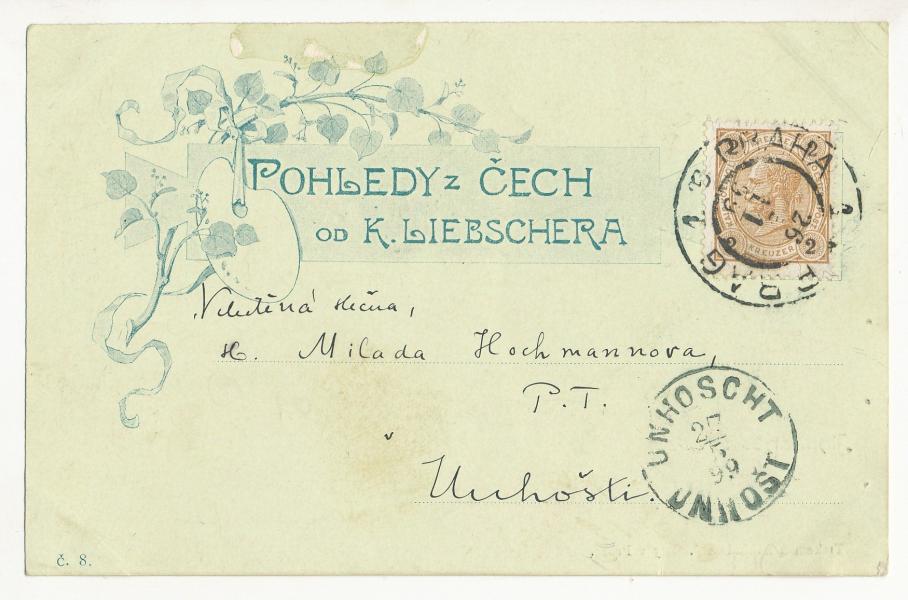 POHLEDY z ČECH
OD K. LIEBSCHERA
PRAHA
PRAG
KREUZER
2
slečna,
sl. Milada Hochmannova,
P. T.
v
Unhošti.
UNHOSCHT
99
UNHOŠŤ
č. 8.